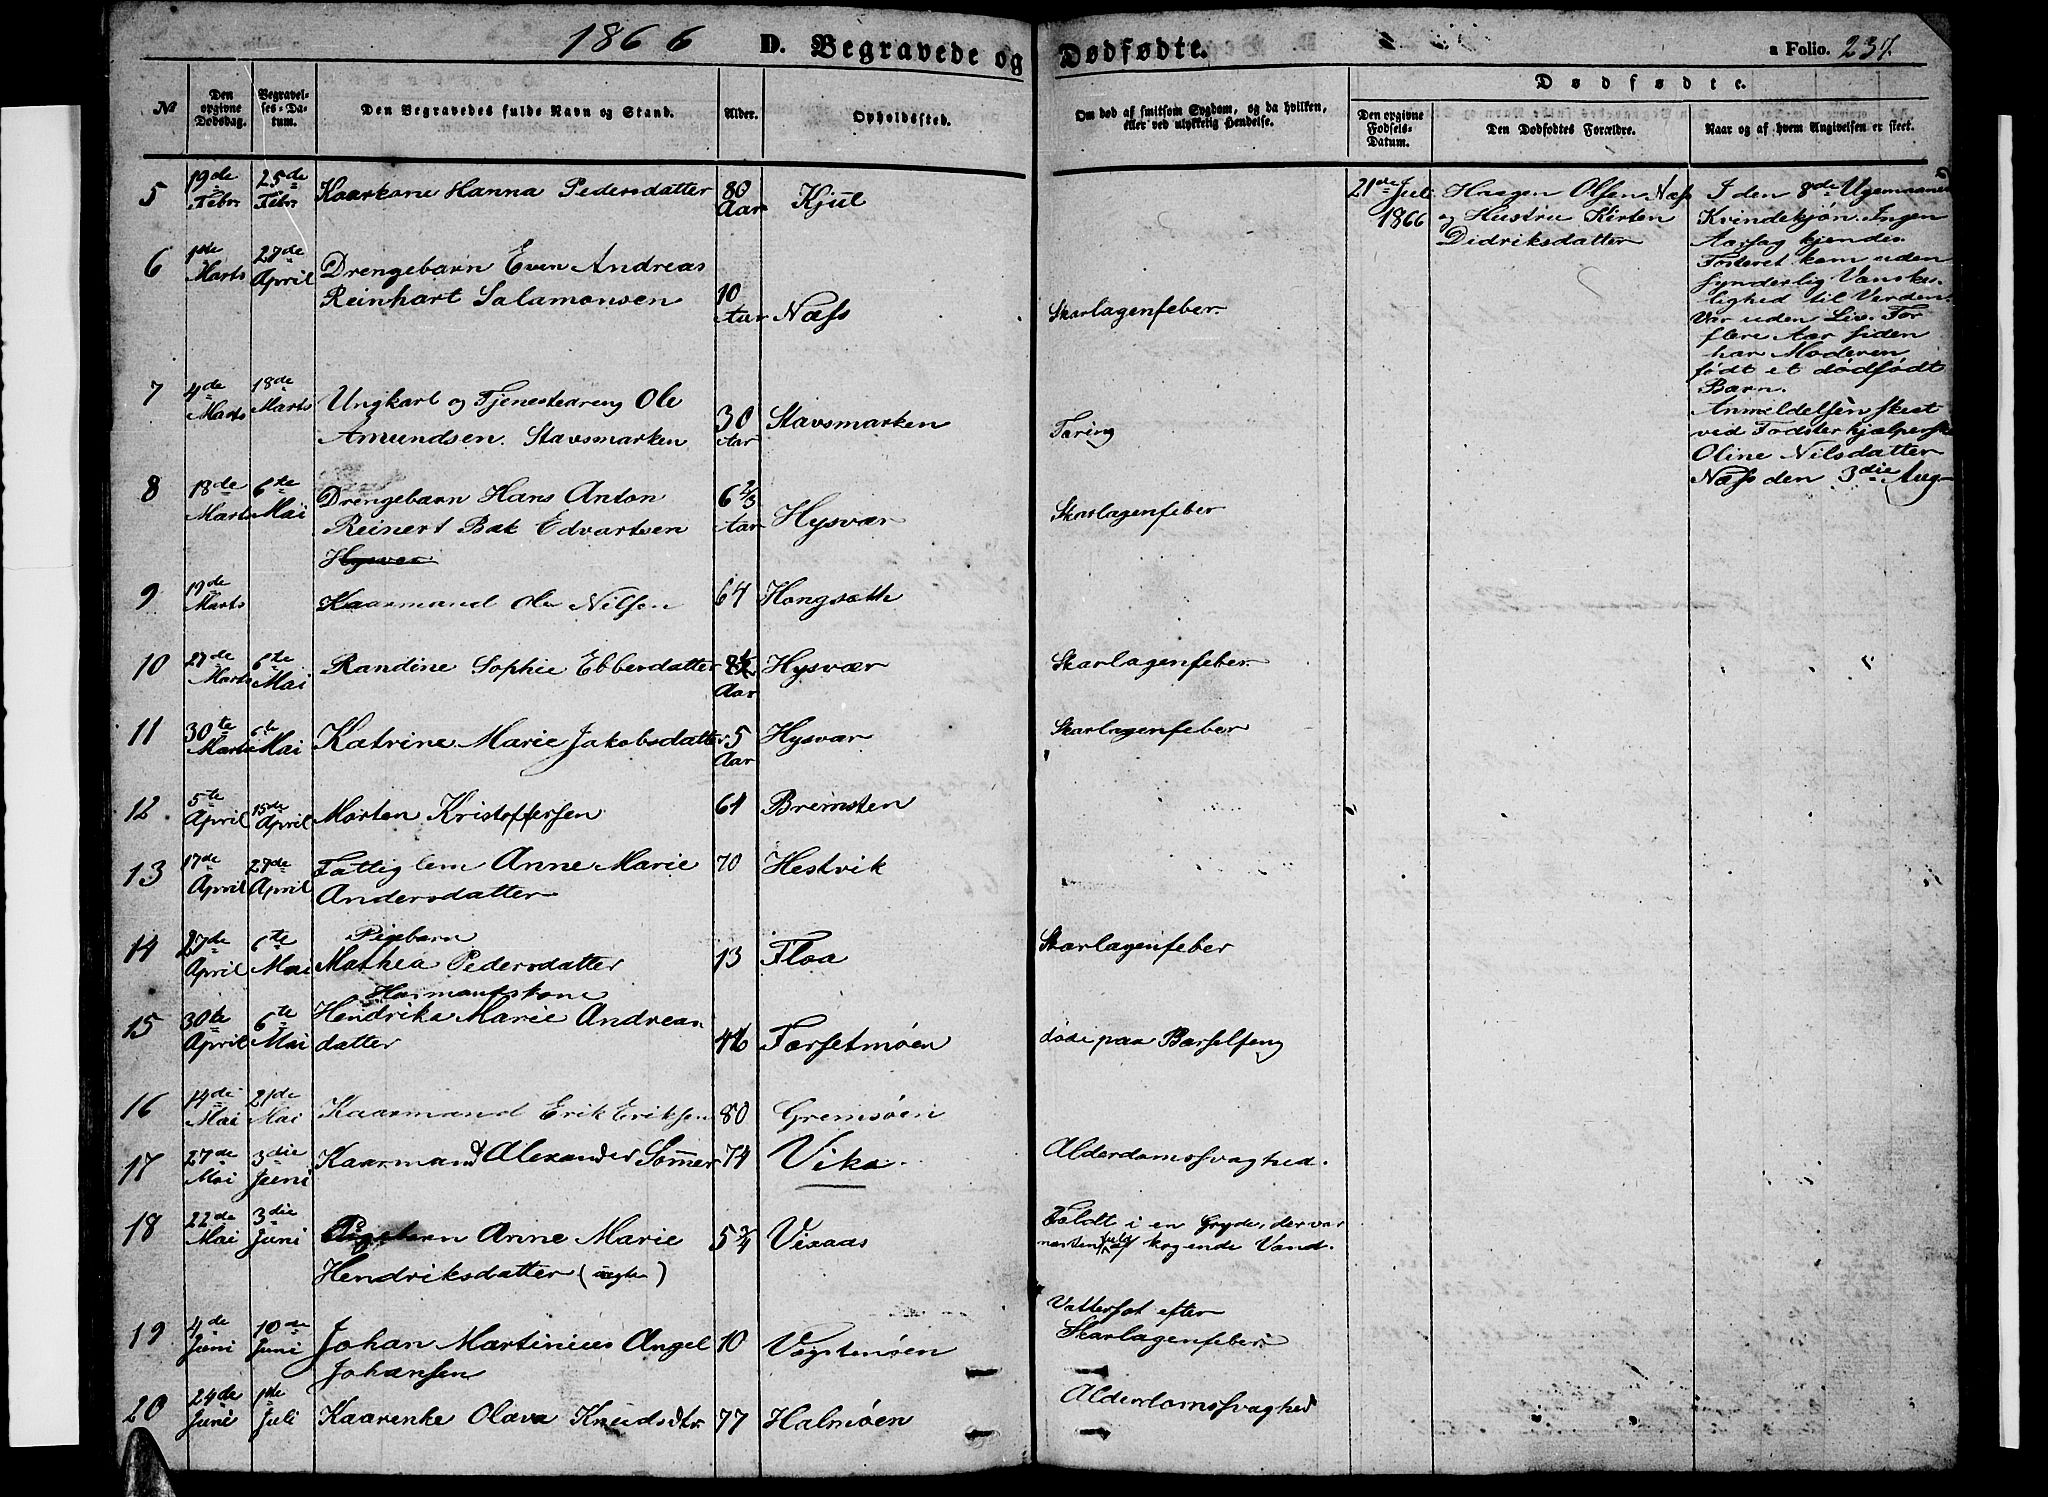 1866 D. Begravede og Dødfødte. a Folio. 237
No
Den opgivne Dødsdag.
Begravelses-Datum.
Den Begravedes fulde Navn og Stand.
Alder.
Opholdssted.
Om død af smitsom Sygdom, og da hvilken, eller ved ulykkelig Hendelse.
Dødfødte.
Den opgivne Fødsels-Datum.
Den Dødfødtes Forældre.
Naar og af hvem Angivelsen er skeet.
5 19de Febr 25de Febr Kaarkone Hanna Pedersdatter 80 Aar Kjul
6 1ste Marts 28de April Drengebarn Even Andreas
Reinhart Salamonsen 10 Aar Næss Skarlagenfeber
7 4de Marts 18de Marts Ungkarl og Tjenestedreng Ole
Amundsen. Stavsmarken 30 Aar Stavsmarken Tæring
8 18de Marts 6te Mai Drengebarn Hans Anton
Reinert Bak Edvartsen 6 2/3 Aar Hysvær Skarlagenfeber
Hysvær
9 19de Marts Kaarmand Ole Nilsen 64 Hongsæth
10 27de Marts 6te Mai Randine Sophie Ebbesdatter 8 1/2 Aar Hysvær Skarlagenfeber
11 30te Marts 6te Mai Katrine Marie Jakobsdatter 5 Aar Hysvær Skarlagenfeber
12 5te April 15de April Morten Kristoffersen 64 Bremsten
13 17de April 28de April Fattiglem Anne Marie 70 Hestvik
Andersdatter
14 27de April 6te Mai Pigebarn
Mathea Pedersdatter 13 Floa Skarlagenfeber
Husmandskone
15 30te April 6te Mai Hendrika Marie Andreas
datter 46 Færsetmøen døde paa Barselseng
16 14de Mai 21de Mai Kaarmand Erik Eriksen 80 Gremsøen
17 27de Mai 3die Juni Kaarmand Alexander Sømer 74 Vika. Alderdomssvaghed.
18 22de Mai 3die Juni Pigebarn Anne Marie 5 3/4 Vixaas Faldt i en Gryde, der var
Hendriksdatter (ægte) næsten fuld af kogende Vand.
19 4de Juni 10de Juni Johan Martinius Angel 10 Vægstenøen Vattersot efter
Johansen Skarlagenfeber
20 24de Juni 1ste Juli Kaarenke Olava Knudsdtr. 77 Halmøen Alderdomssvaghed
21de Juli 1866
Hagen Olsen Næss
og Hustru Kirsten
Didriksdatter
I den 8de Ugemaaned
Kvindekjøn. Ingen
Aarsag kjendes.
Fosteret kom uden
synderlig Vanske-
lighed til Verden.
Var uden Liv. For
flere Aar siden
har Moderen
født et dødfødt
Barn.
Anmeldelsen skeet
ved Fødsterhjælperske
Oline Nilsdatter
Næss den 3die Aug